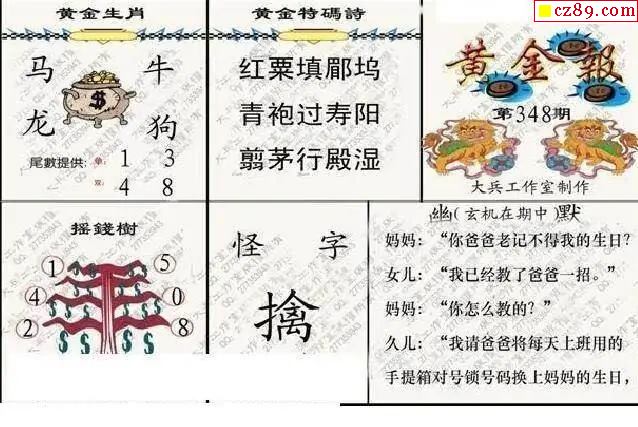 cz89.com
黄金生肖
马 牛
龙 狗
尾數提供：单： 1 3
双： 4 8
黄金特碼詩
红粟填郿坞
青袍过寿阳
翦茅行殿湿
黄金報
第348期
大兵工作室制作
摇錢樹
1 5
4 0
2 8
怪 字
擒
幽(玄机在期中)默
妈妈：“你爸爸老记不得我的生日?
女儿：“我已经教了爸爸一招。”
妈妈：“你怎么教的？”
久儿：“我请爸爸将每天上班用的
手提箱对号锁号码换上妈妈的生日，